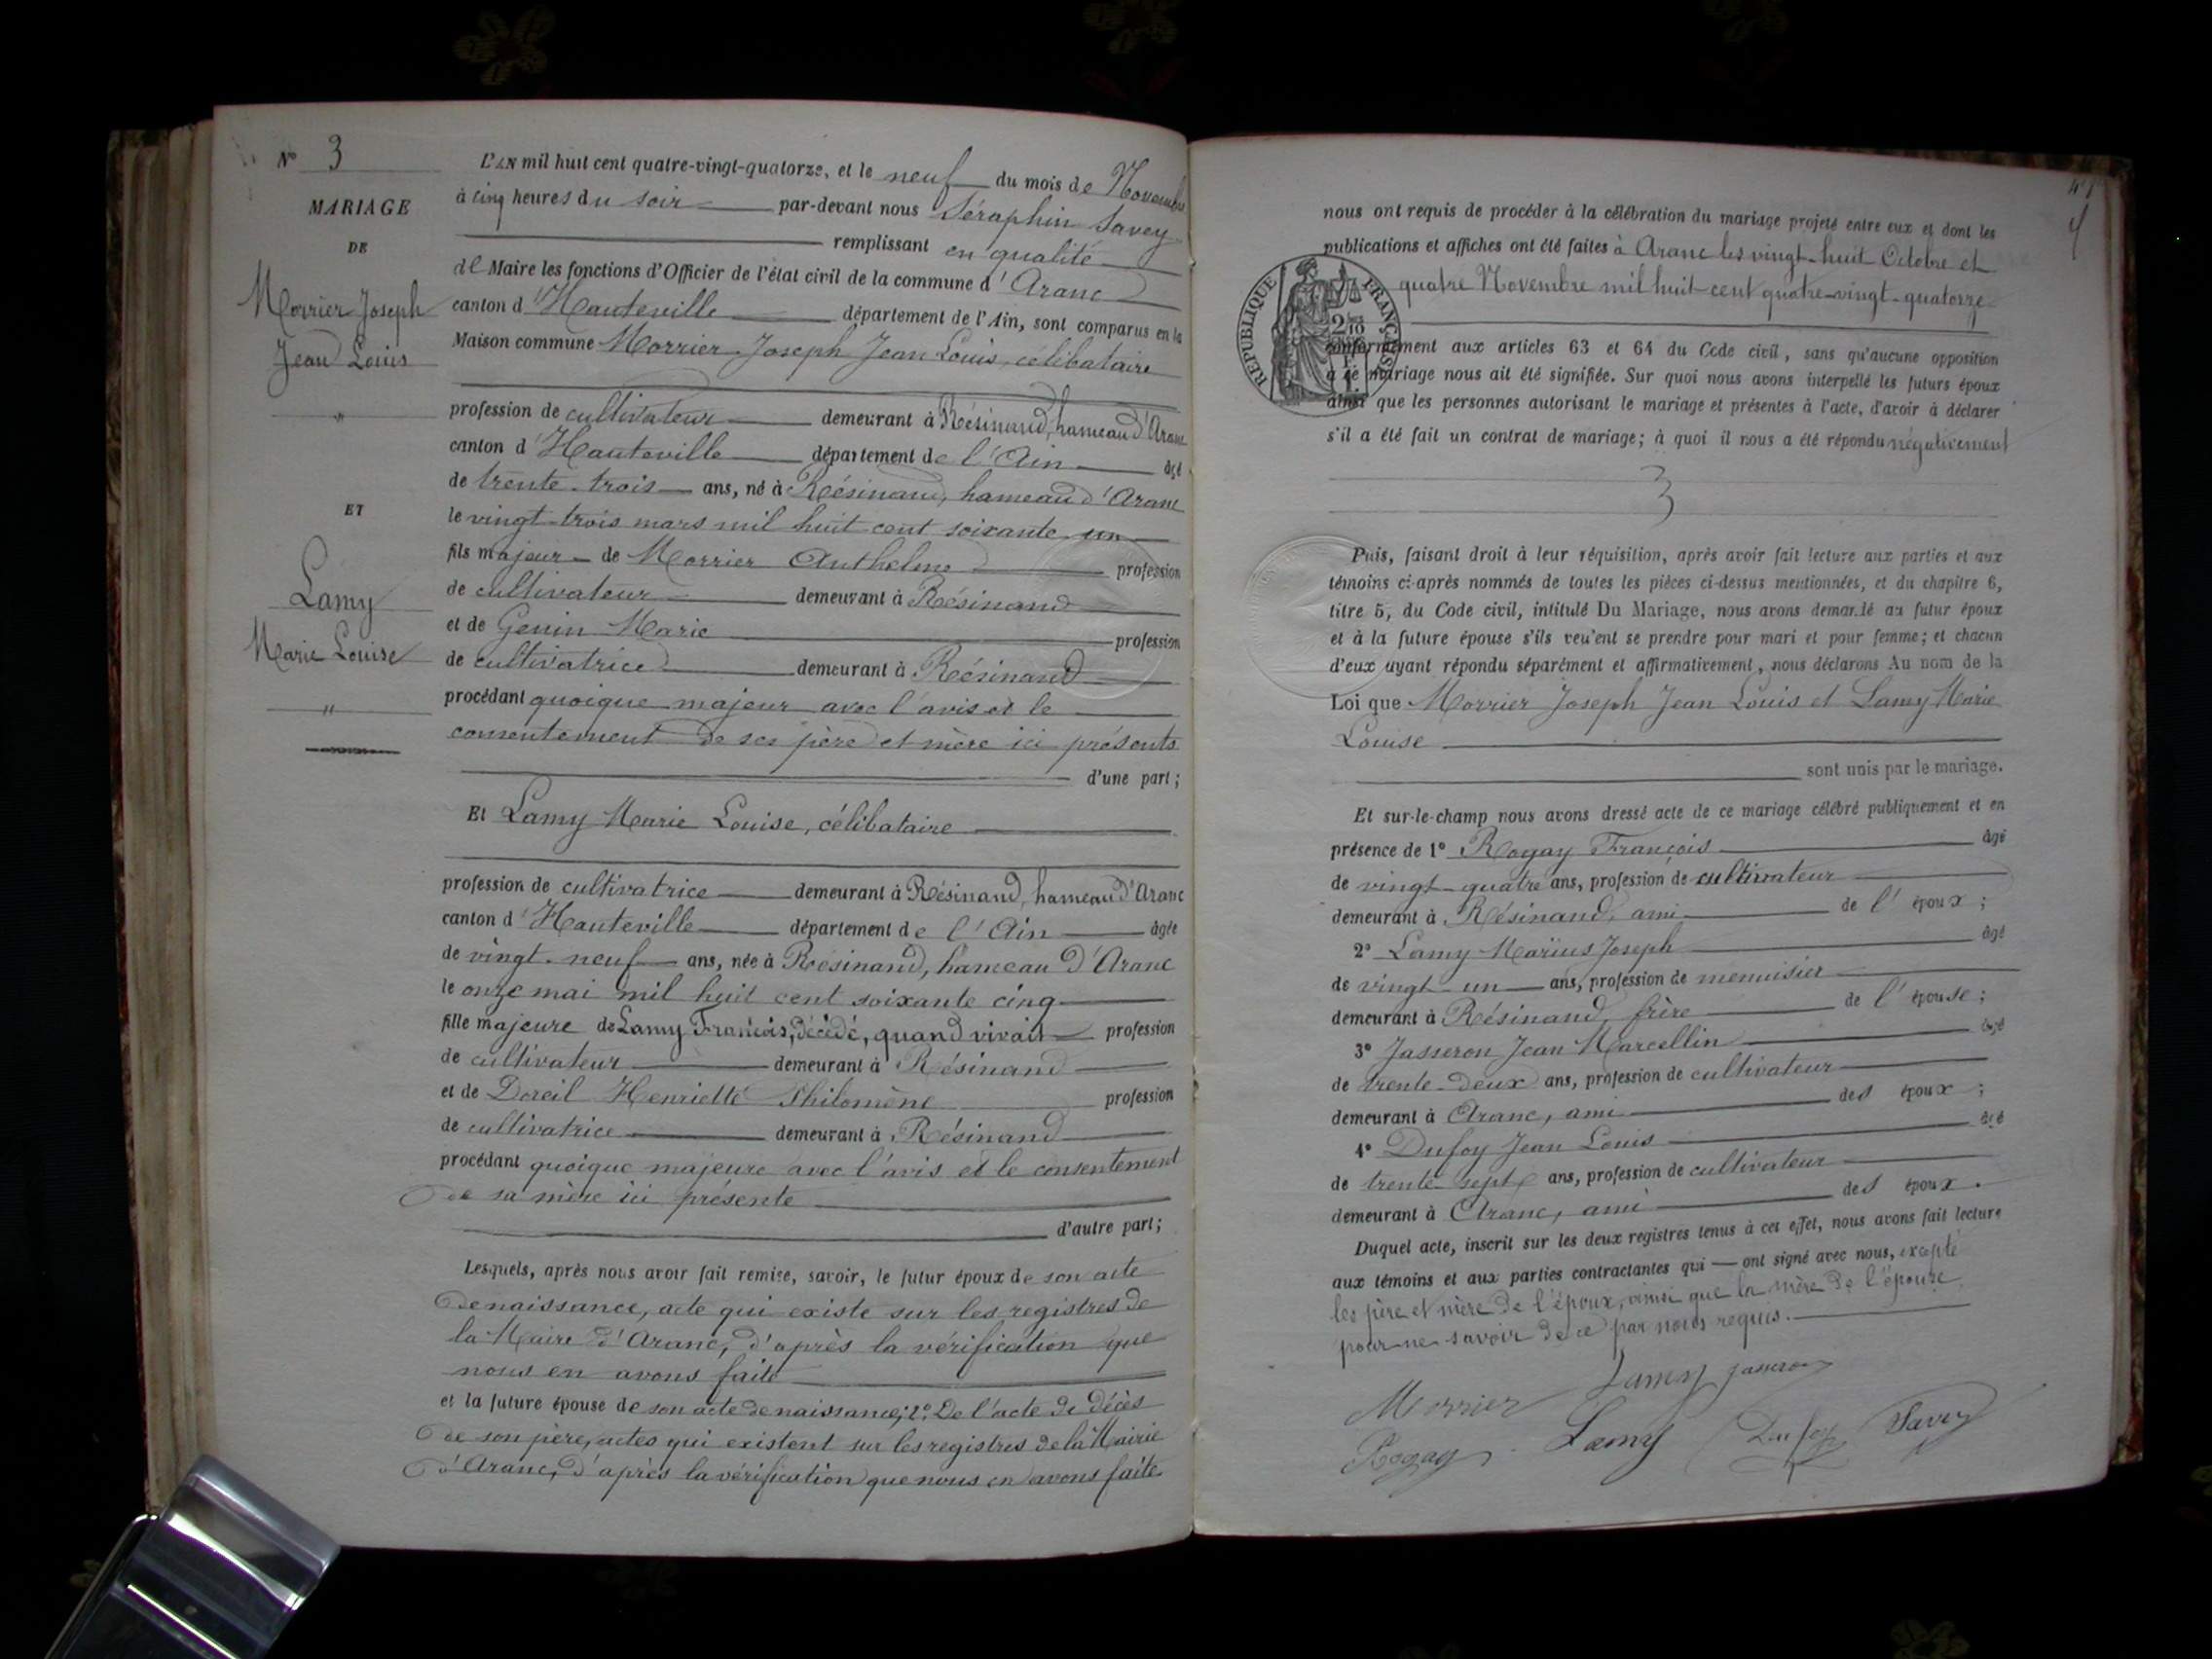 N° 3
MARIAGE
DE
Morrier Joseph
Jean Louis
"
ET
Lamy
Marie Louise
"
L'AN mil huit cent quatre-vingt-quatorze, et le neuf du mois de Novembre
à cinq heures du soir par-devant nous Séraphin Savey
remplissant en qualité
de Maire les fonctions d'Officier de l'état civil de la commune d'Aranc
canton d'Hauteville département de l'Ain, sont comparus en la
Maison commune Morrier Joseph Jean Louis, célibataire
profession de cultivateur demeurant à Résinand, hameau d'Aranc
canton d'Hauteville département de l'Ain âgé
de trente-trois ans, né à Résinand, hameau d'Aranc
le vingt-trois mars mil huit cent soixante un
fils majeur de Morrier Anthelme profession
de cultivateur demeurant à Résinand
et de Genin Marie profession
de cultivatrice demeurant à Résinand
procédant quoique majeur avec l'avis et le
consentement de ses père et mère ici présents
d'une part;
Et Lamy Marie Louise, célibataire
profession de cultivatrice demeurant à Résinand, hameau d'Aranc
canton d'Hauteville département de l'Ain âgée
de vingt-neuf ans, née à Résinand, hameau d'Aranc
le onze mai mil huit cent soixante cinq
fille majeure de Lamy François, décédé, quand vivait profession
de cultivateur demeurant à Résinand
et de Doreil Henriette Philomène profession
de cultivatrice demeurant à Résinand
procédant quoique majeure avec l'avis et le consentement
de sa mère ici présente
d'autre part;
Lesquels, après nous avoir fait remise, savoir, le futur époux de son acte
de naissance, acte qui existe sur les registres de
la Mairie d'Aranc, d'après la vérification que
nous en avons faite
et la future épouse de son acte de naissance; 2° De l'acte de décès
de son père, actes qui existent sur les registres de la Mairie
d'Aranc, d'après la vérification que nous en avons faite
nous ont requis de procéder à la célébration du mariage projeté entre eux et dont les
publications et affiches ont été faites à Aranc les vingt-huit Octobre et
quatre Novembre mil huit-cent quatre-vingt-quatorze
RÉPUBLIQUE FRANÇAISE
conformément aux articles 63 et 64 du Code civil, sans qu'aucune opposition
à ce mariage nous ait été signifiée. Sur quoi nous avons interpellé les futurs époux
ainsi que les personnes autorisant le mariage et présentes à l'acte, d'avoir à déclarer
s'il a été fait un contrat de mariage; à quoi il nous a été répondu négativement
Puis, faisant droit à leur réquisition, après avoir fait lecture aux parties et aux
témoins ci-après nommés de toutes les pièces ci-dessus mentionnées, et du chapitre 6,
titre 5, du Code civil, intitulé Du Mariage, nous avons demandé au futur époux
et à la future épouse s'ils veulent se prendre pour mari et pour femme; et chacun
d'eux ayant répondu séparément et affirmativement, nous déclarons Au nom de la
Loi que Morrier Joseph Jean Louis et Lamy Marie
Louise
sont unis par le mariage.
Et sur-le-champ nous avons dressé acte de ce mariage célébré publiquement et en
présence de 1° Rogay François âgé
de vingt-quatre ans, profession de cultivateur
demeurant à Résinand, ami de l'époux;
2° Lamy Marius Joseph âgé
de vingt un ans, profession de menuisier
demeurant à Résinand, frère de l'épouse;
3° Jasseron Jean Marcellin âgé
de trente-deux ans, profession de cultivateur
demeurant à Aranc, ami des époux;
4° Dufoy Jean Louis âgé
de trente-sept ans, profession de cultivateur
demeurant à Aranc, ami des époux.
Duquel acte, inscrit sur les deux registres tenus à cet effet, nous avons fait lecture
aux témoins et aux parties contractantes qui ont signé avec nous, excepté
les père et mère de l'époux, ainsi que la mère de l'épouse
pour ne savoir de ce par nous requis.
Morrier Lamy Jasseron
Rogay Lamy Dufoy Savey